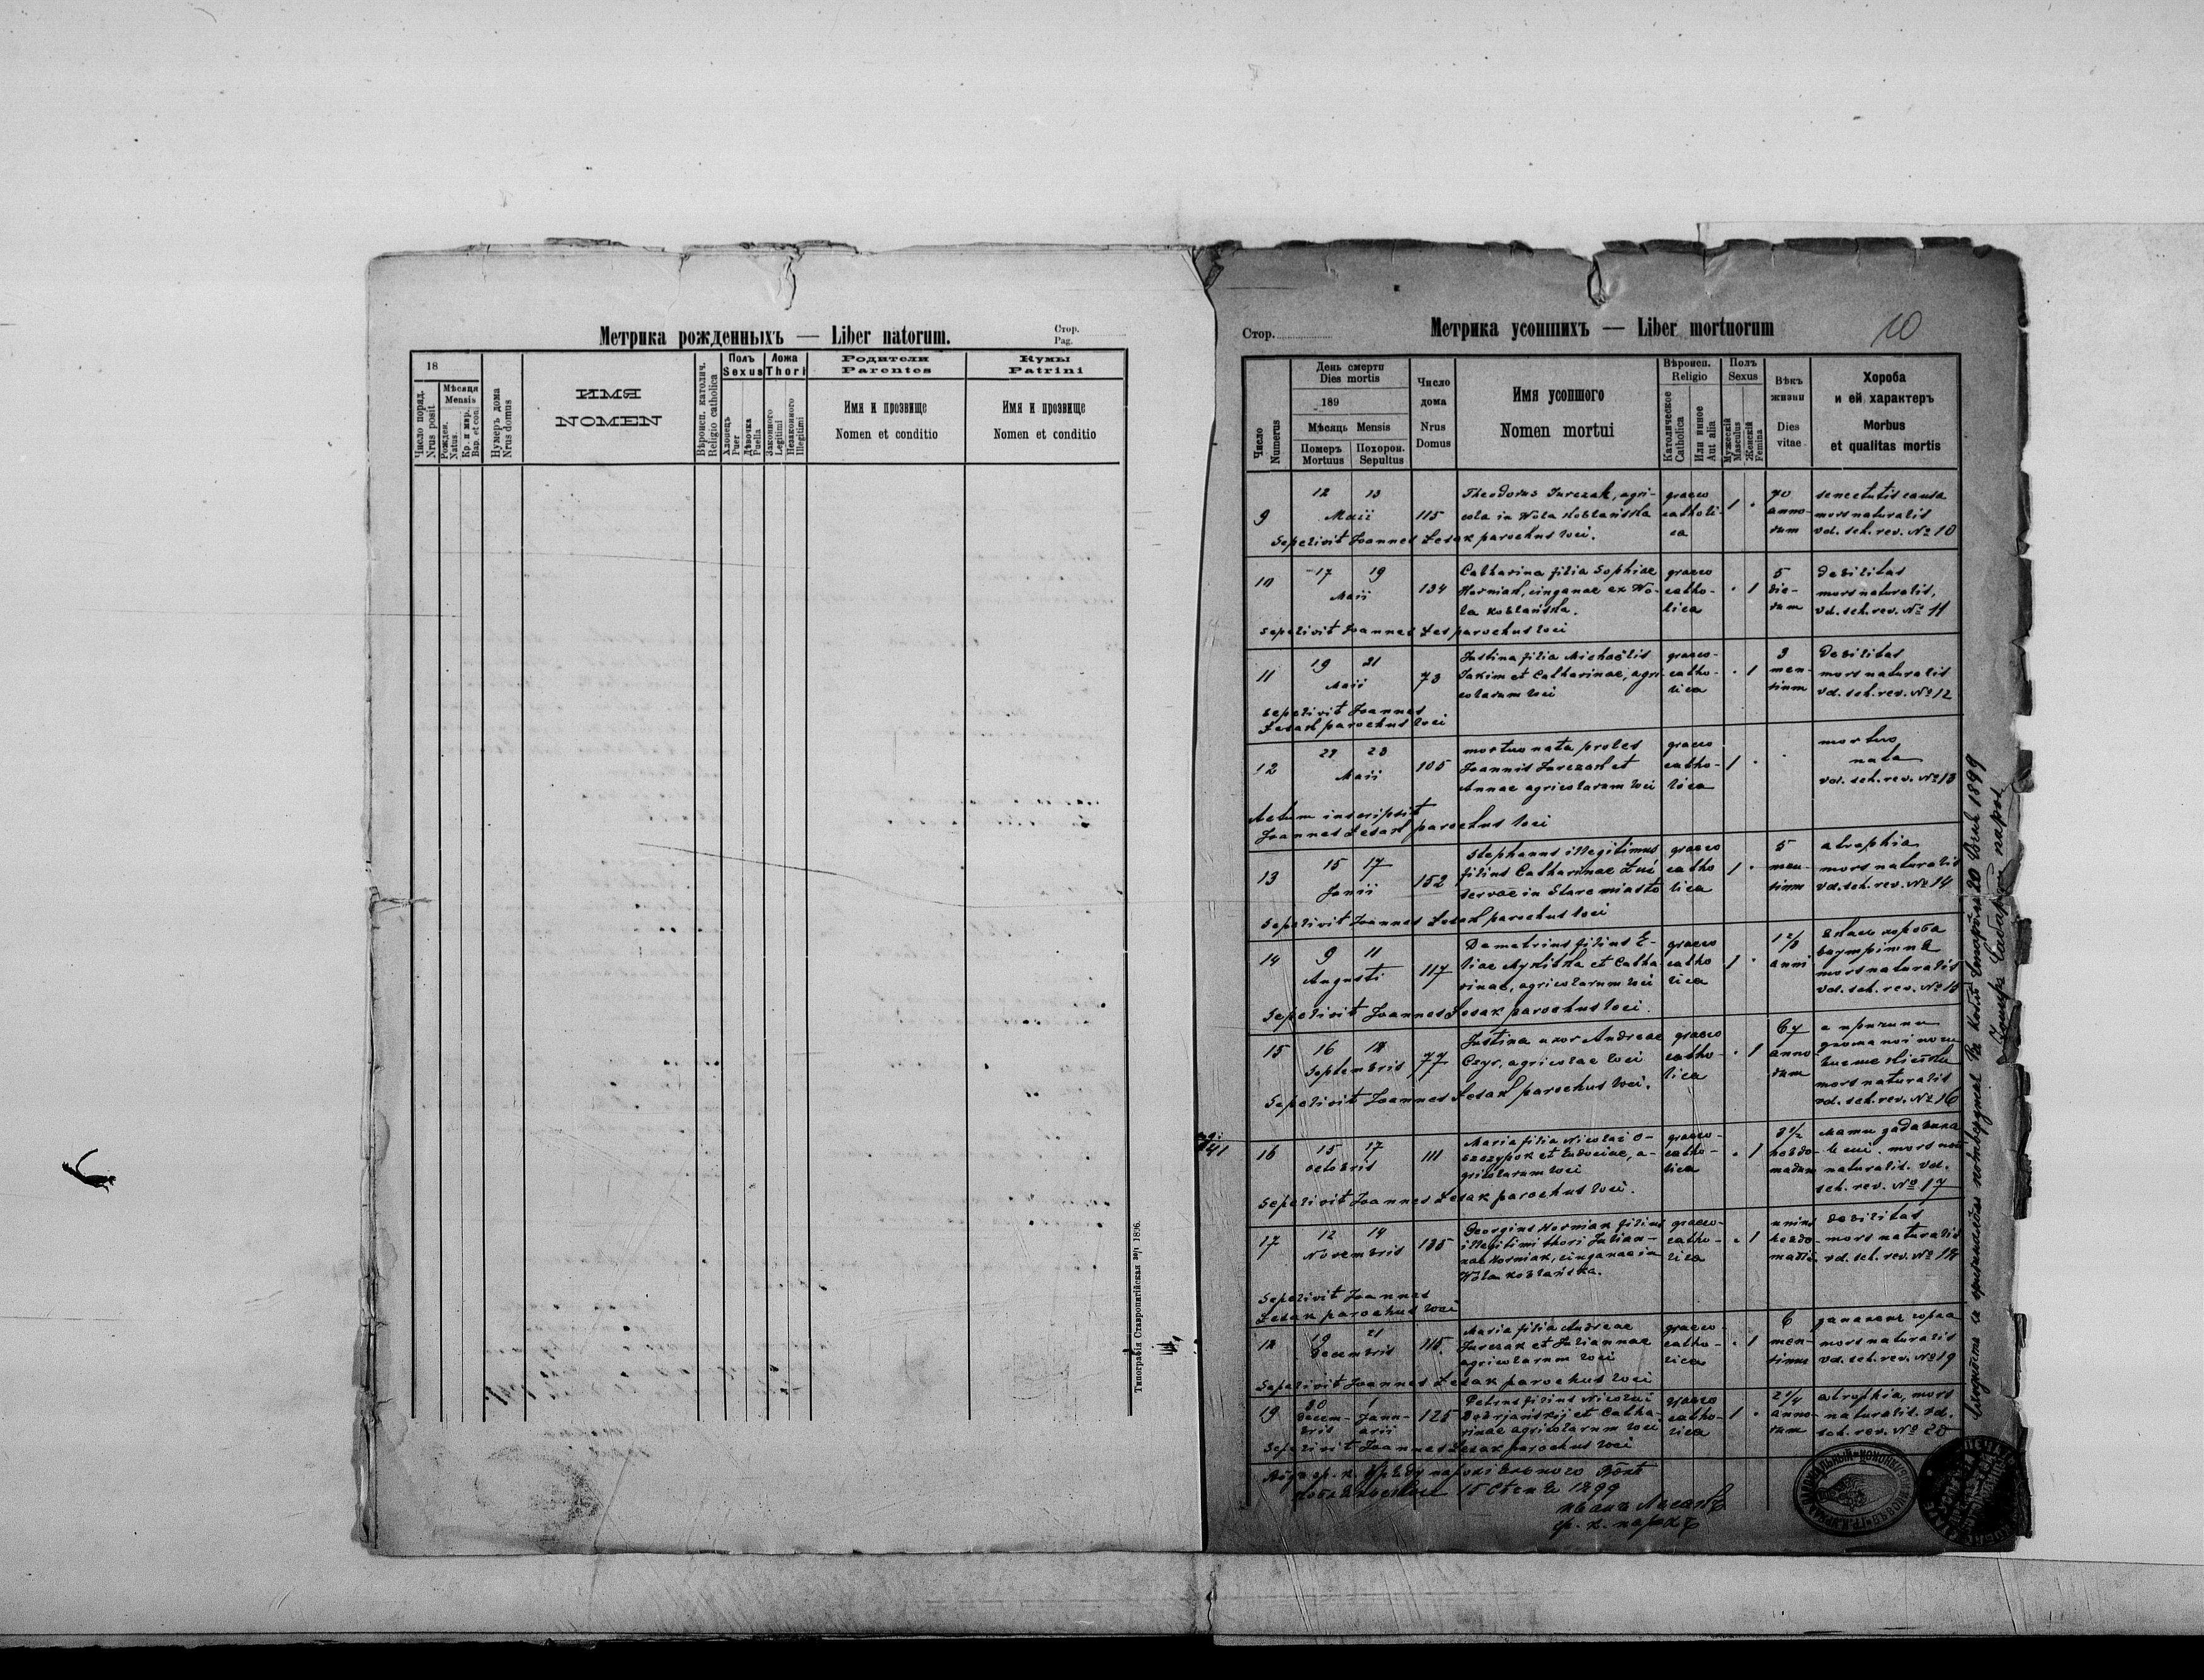 Метрика рожденныхъ — Liber natorum.
Стор.
Pag.
18
Число поряд.
Nrus posit
Мѣсяця
Mensis
Рожден.
Natus.
Кр. и мѵр.
Bap. et con.
Нумеръ дома
Nrus domus
ИМЯ
NOMEN
Вѣроисп. католич.
Religio catholica
Полъ
Sexus
Хлопець
Puer
Дѣвочка
Puella
Ложа
Thori
Законного
Legitimi
Незаконного
Illegitimi
Родители
Parentes
Имя и прозвище
Nomen et conditio
Кумы
Patrini
Имя и прозвище
Nomen et conditio
Типографія Ставропигійская 1896.
Стор.
Метрика усопшихъ — Liber mortuorum
10
Число
Numerus
День смерти
Dies mortis
189
Мѣсяць Mensis
Померъ
Mortuus
Похорон.
Sepultus
Число
дома
Nrus
Domus
Имя усопшого
Nomen mortui
Вѣроисп.
Religio
Католическое
Catholica
Или инное
Aut alia
Полъ
Sexus
Мужескій
Masculus
Женскій
Femina
Вѣкъ
жизни
Dies
vitae
Хороба
и ей характеръ
Morbus
et qualitas mortis
9
12 13
Maii
115
Theodorus Jurczak, agri-
cola in Wola Koblańska
graeco
catholi-
ca
1 ·
70
anno-
rum
senectutis causa
mors naturalis
vd. sch. rev. № 10
Sepelivit Joannes Lesak parochus loci.
10
17 19
Maii
134
Catharina filia Sophiae
Horniak, cinganae ex Wo-
la Koblańska.
graeco
catho-
lica
· 1
5
die-
rum
debilitas
mors naturalis,
vd. sch. rev. № 11
Sepelivit Joannes Les parochus loci
11
19 21
Maii
73
Justina filia Michaëlis
Jakim et Catharinae, agri-
colarum loci
graeco-
catho-
lica
· 1
3
men-
sium
debilitas
mors naturalis
vd. sch. rev. № 12
Sepelivit Joannes
Lesak parochus loci
12
22 23
Maii
105
mortuo nata proles
Joannis Jurczak et
Annae agricolarum loci
graeco
catho-
lica
1 ·
mortuo
nata
vd. sch. rev. № 13
Actum inscripsit
Joannes Lesak parochus loci
13
15 17
Junii
152
Stephanus illegitimus
filius Catharinae
servae in Stare miasto
graeco
catho
lica
1 ·
5
men-
sium
atrophia
mors naturalis
vd. sch. rev. № 14
Sepelivit Joannes Lesak parochus loci
14
9 11
Augusti
117
Demetrius filius E-
liae Mykitka et Catha-
rinae, agricolarum loci
graeco
catho
lica
1 ·
1 2/3
anni
хороба
mors naturalis
vd. sch. rev. №
Sepelivit Joannes Lesak parochus loci.
15
16 18
Septembris
77
Justina uxor Andreae
Czyr, agricolae loci
graeco
catho-
lica
· 1
67
anno-
rum
mors naturalis
vd. sch. rev. № 16
Sepelivit Joannes Lesak parochus loci.
16
15 17
octobris
111
Maria filia Nicolai O-
szczypok et Eudociae, a-
gricolarum loci
graeco-
catho-
lica
· 1
3 1/2
hebdo-
madum
мати
mors non
naturalis. vd.
sch. rev. № 17
Sepelivit Joannes Lesak parochus loci.
17
12 14
Novembris
135
Georgius Horniak filius
illegitimi thori Julian-
nae Horniak, cinganae in
Wola Koblańska.
graeco-
catho-
lica
· 1
unius
hebdo-
madis
debilitas
mors naturalis
vd. sch. rev. № 18
Sepelivit Joannes
Lesak parochus loci
18
19 21
Decembris
115
Maria filia Andreae
Jurczak et Juliannae
agricolarum loci
graeco-
catho-
lica
· 1
6
men-
sium
mors naturalis
vd. sch. rev. № 19
Sepelivit Joannes Lesak parochus loci
19
30 1
Decem- Janu-
bris arii
125
Petrus filius Nicolai
Dobrjańskij et Catha-
rinae agricolarum loci
graeco
catho-
lica
1 ·
2 1/4
anno-
rum
atrophia, mors
naturalis. vd.
sch. rev. № 20
Sepelivit Joannes Lesak parochus loci
15 1899
гр. к.
1899